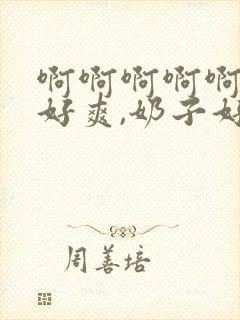 啊啊啊啊啊
好爽,奶子好
周善培